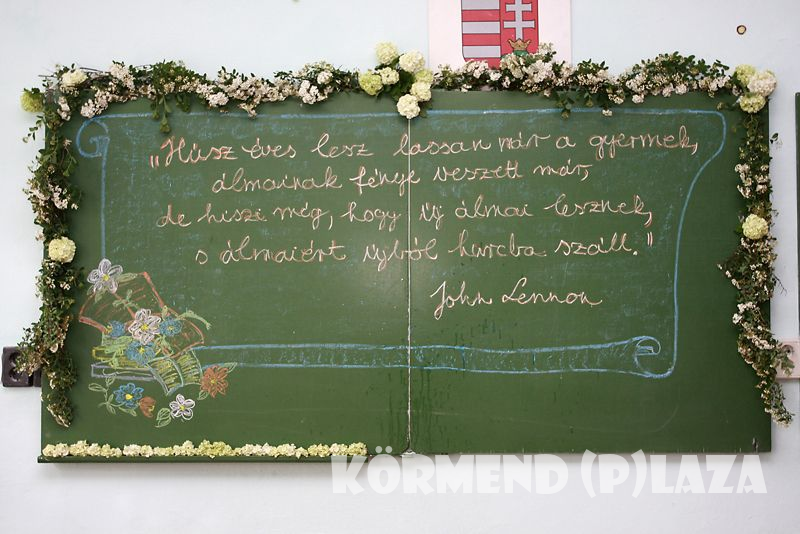 „Húsz éves lesz lassan már a gyermek,
álmainak fénye veszett már,
de hiszi még, hogy új álmai lesznek,
s álmaiért újból harcba száll."
John Lennon
KÖRMEND (P)LAZA